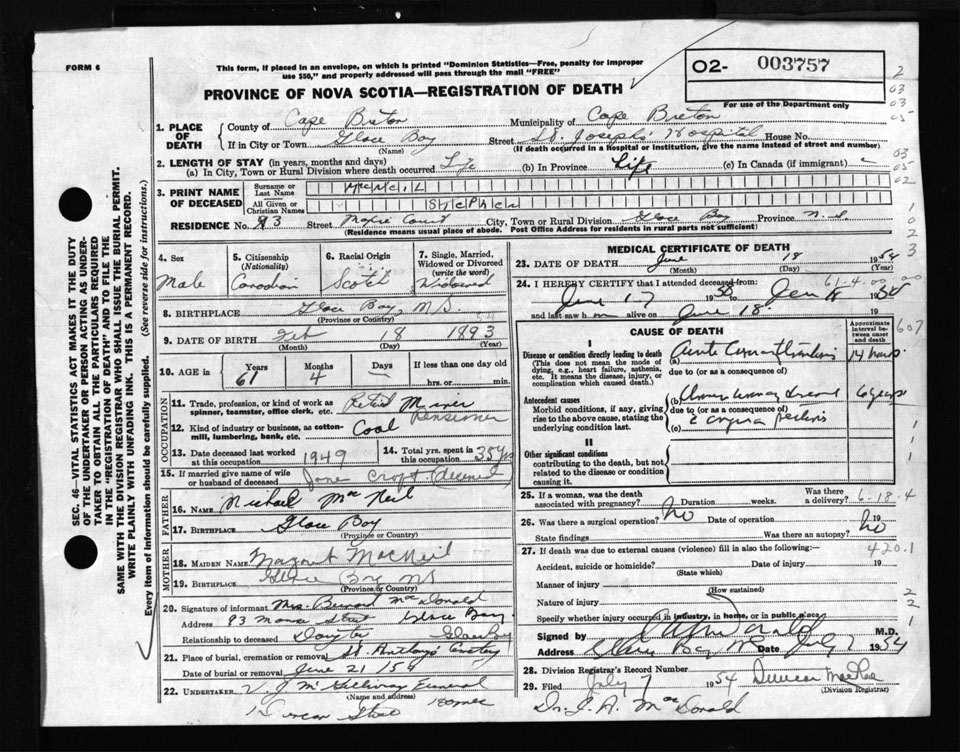 FORM 6
This form, if placed in an envelope, on which is printed "Dominion Statistics—Free, penalty for improper
use $50," and properly addressed will pass through the mail "FREE"
O2- 003757
PROVINCE OF NOVA SCOTIA—REGISTRATION OF DEATH
For use of the Department only
1. PLACE OF DEATH
County of Cape Breton Municipality of Cape Breton
If in City or Town Glace Bay Street St. Joseph's Hospital House No.
(Name) (If death occurred in a Hospital or Institution, give the name instead of street and number)
2. LENGTH OF STAY (in years, months and days)
(a) In City, Town or Rural Division where death occurred Life (b) In Province Life (c) In Canada (if immigrant)
3. PRINT NAME OF DECEASED
Surname or Last Name McNEIL
All Given or Christian Names STEPHEN
RESIDENCE No. 93 Street City, Town or Rural Division Glace Bay Province N.S
(Residence means usual place of abode. Post Office Address for residents in rural parts not sufficient)
4. Sex
Male
5. Citizenship
(Nationality)
Canadian
6. Racial Origin
Scotch
7. Single, Married,
Widowed or Divorced
(write the word)
Widowed
8. BIRTHPLACE Glace Bay, N.S.
(Province or Country)
9. DATE OF BIRTH Feb 18 1893
(Month) (Day) (Year)
10. AGE in
Years Months Days If less than one day old
61 4 hrs. or min.
OCCUPATION
11. Trade, profession or kind of work as
spinner, teamster, office clerk, etc. Retired Miner
Pensioner
12. Kind of industry or business, as cotton-
mill, lumbering, bank, etc. Coal
13. Date deceased last worked
at this occupation 1949
14. Total yrs. spent in
this occupation 35 yrs
15. If married give name of wife
or husband of deceased Jane Croft - deceased
FATHER
16. Name Michael MacNeil
17. Birthplace Glace Bay
(Province or Country)
MOTHER
18. Maiden Name Margaret MacNeil
19. Birthplace Glace Bay NS
(Province or Country)
20. Signature of informant Mrs. Bernard MacDonald
Address 93 Street Glace Bay
Relationship to deceased Daughter Glace Bay
21. Place of burial, cremation or removal St. Anthony's Cemetery
Date of burial or removal June 21/54
22. Undertaker V. J. McGillivray Funeral
(Name and address) Home
Street
MEDICAL CERTIFICATE OF DEATH
23. DATE OF DEATH June 18 1954
(Month) (Day) (Year)
24. I HEREBY CERTIFY that I attended deceased from:
June 17 19
and last saw h m alive on June 18
CAUSE OF DEATH
Approximate interval between onset and death
I
Disease or condition directly leading to death
(This does not mean the mode of
dying, e.g., heart failure, asthenia,
etc. It means the disease, injury, or
complication which caused death.
(a) Acute Coronary Thrombosis 14 hours
due to (or as a consequence of)
Antecedent causes
Morbid conditions, if any, giving
rise to the above cause, stating the
underlying condition last.
(b) 6 years
due to (or as a consequence of)
(c) angina pectoris
II
Other significant conditions
contributing to the death, but not
related to the disease or condition
causing it.
25. If a woman, was the death
associated with pregnancy? Duration weeks. Was there
a delivery?
6-18-4
26. Was there a surgical operation? no Date of operation 19
State findings Was there an autopsy? no
27. If death was due to external causes (violence) fill in also the following:—
420.1
Accident, suicide or homicide? Date of injury 19
(State which)
Manner of injury
(How sustained)
Nature of injury
Specify whether injury occurred in industry, in home, or in public place
Signed by M.D.
Address Glace Bay Date July 7 1954
28. Division Registrar's Record Number
29. Filed July 7 1954 Duncan MacRae
(Division Registrar)
Dr. J. A. MacDonald
SEC. 46—VITAL STATISTICS ACT MAKES IT THE DUTY
OF THE UNDERTAKER OR PERSON ACTING AS UNDER-
TAKER TO OBTAIN ALL THE PARTICULARS REQUIRED
IN THE "REGISTRATION OF DEATH" AND TO FILE THE
SAME WITH THE DIVISION REGISTRAR WHO SHALL ISSUE THE BURIAL PERMIT.
WRITE PLAINLY WITH UNFADING INK. THIS IS A PERMANENT RECORD.
Every item of information should be carefully supplied. (See reverse side for instructions.)